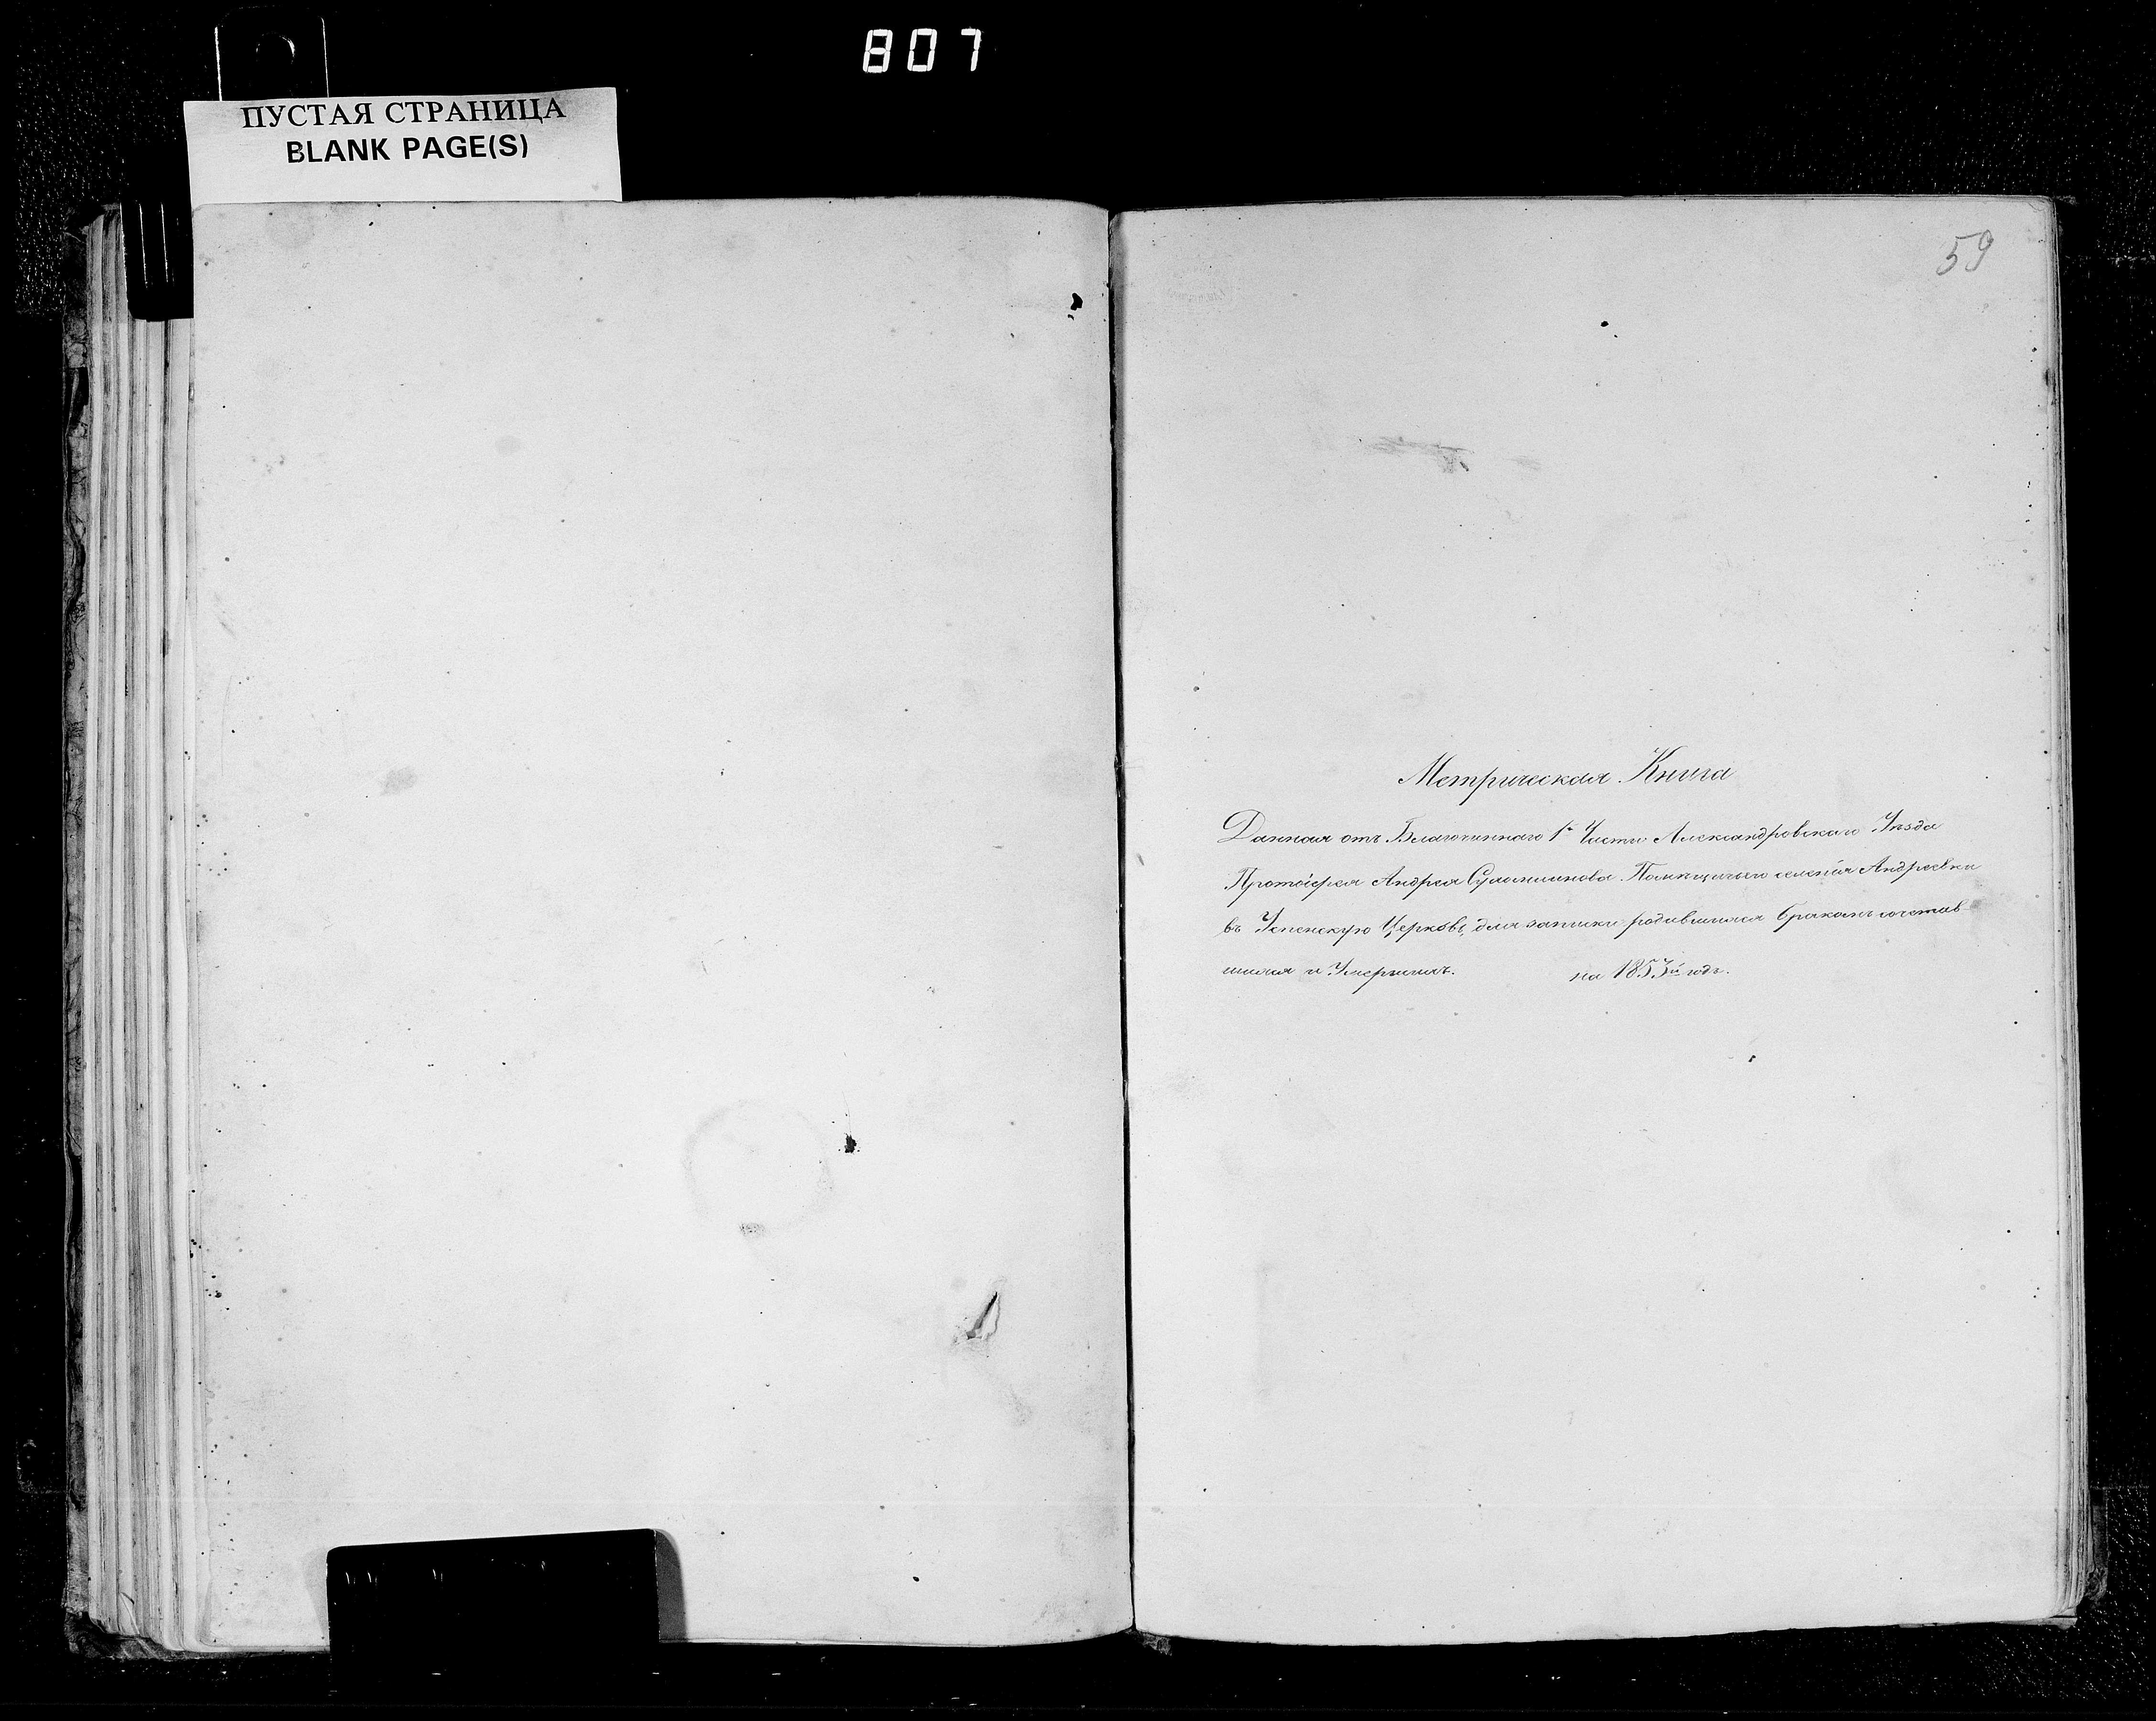 807
ПУСТАЯ СТРАНИЦА
BLANK PAGE(S)
59
Метрическая Книга
Данная отъ Благочиннаго 1й Части Александровскаго Уѣзда
Протоіерея Андрея Помѣщичьяго селенія Андреевки
въ Успенскую Церковь, для записки родившихся бракомъ сочетав-
шихся и Умершихъ. на 1853й годъ.